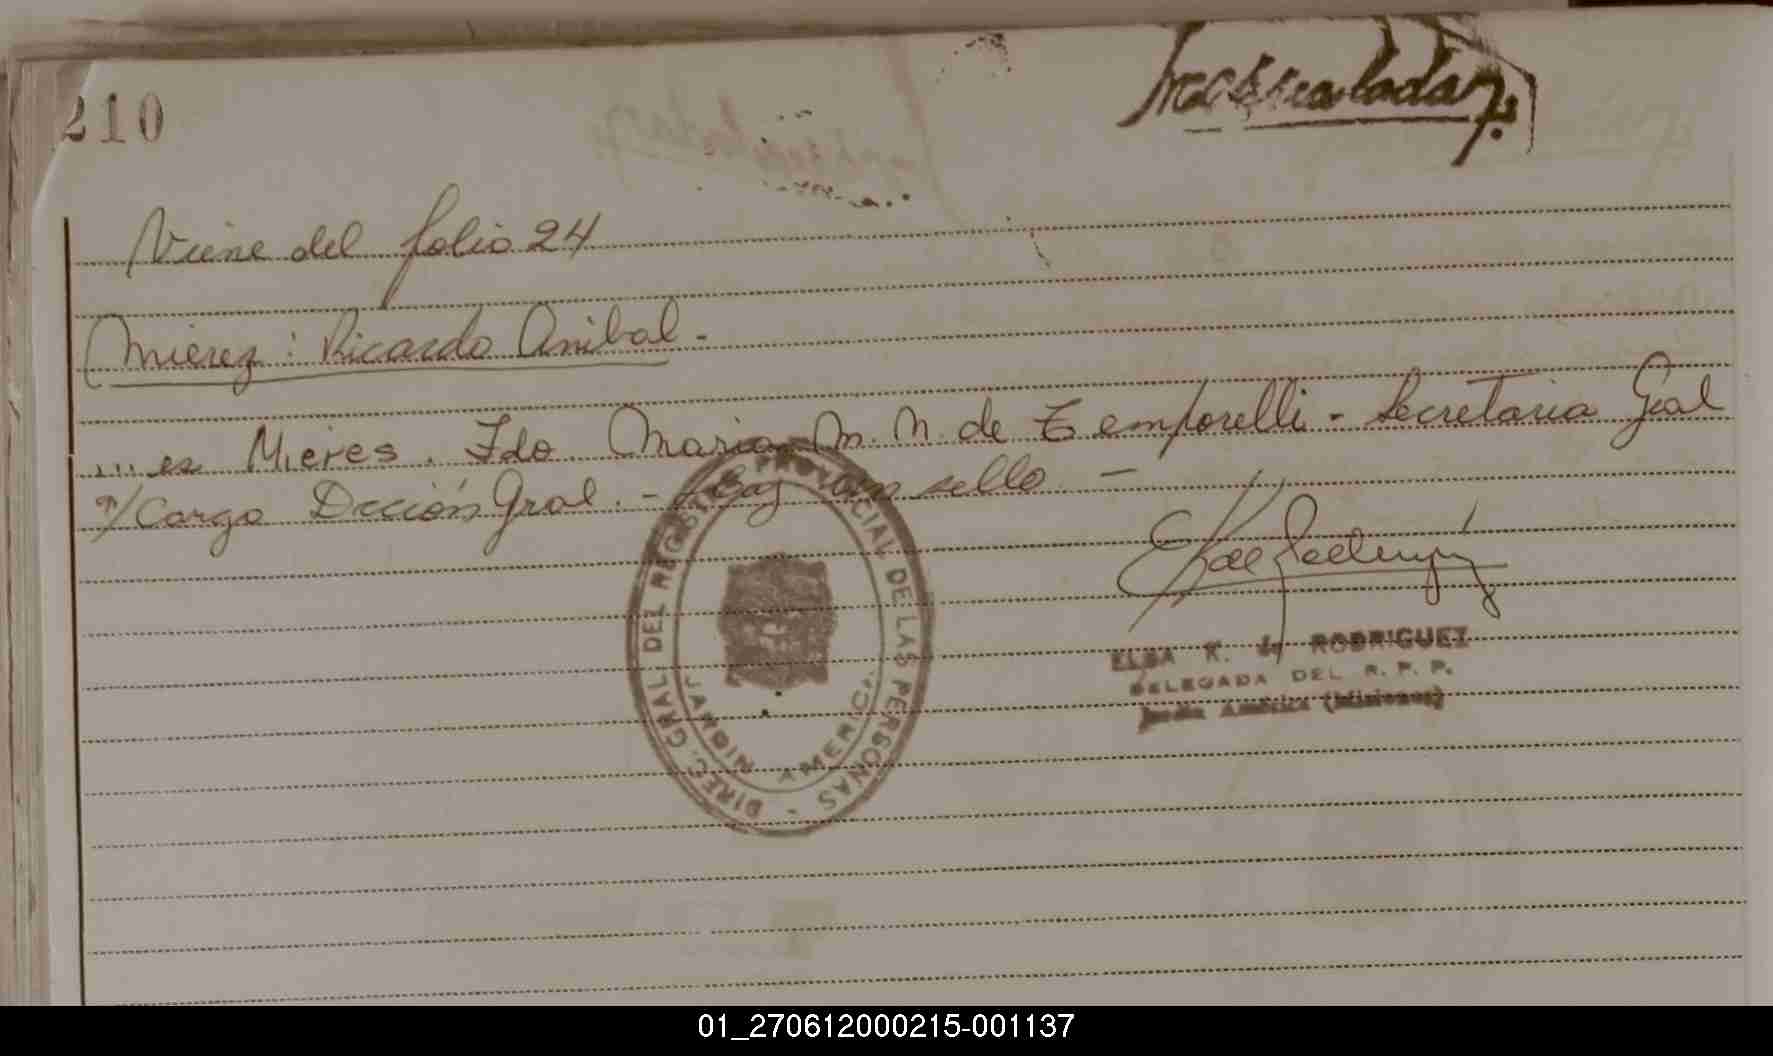 210
Viene del folio 24
Mierez: Ricardo Anibal -
.... es Mieres. Fdo. Maria M. N. de Temporelli - Secretaria Gral
a/cargo Dcción Gral. - Hay un sello -
DIREC. GRAL. DEL REGISTRO PROVINCIAL DE LAS PERSONAS -
JARDIN AMERICA
ELBA K. de RODRIGUEZ
DELEGADA DEL R. P. P.
Jardín América (Misiones)
01_270612000215-001137